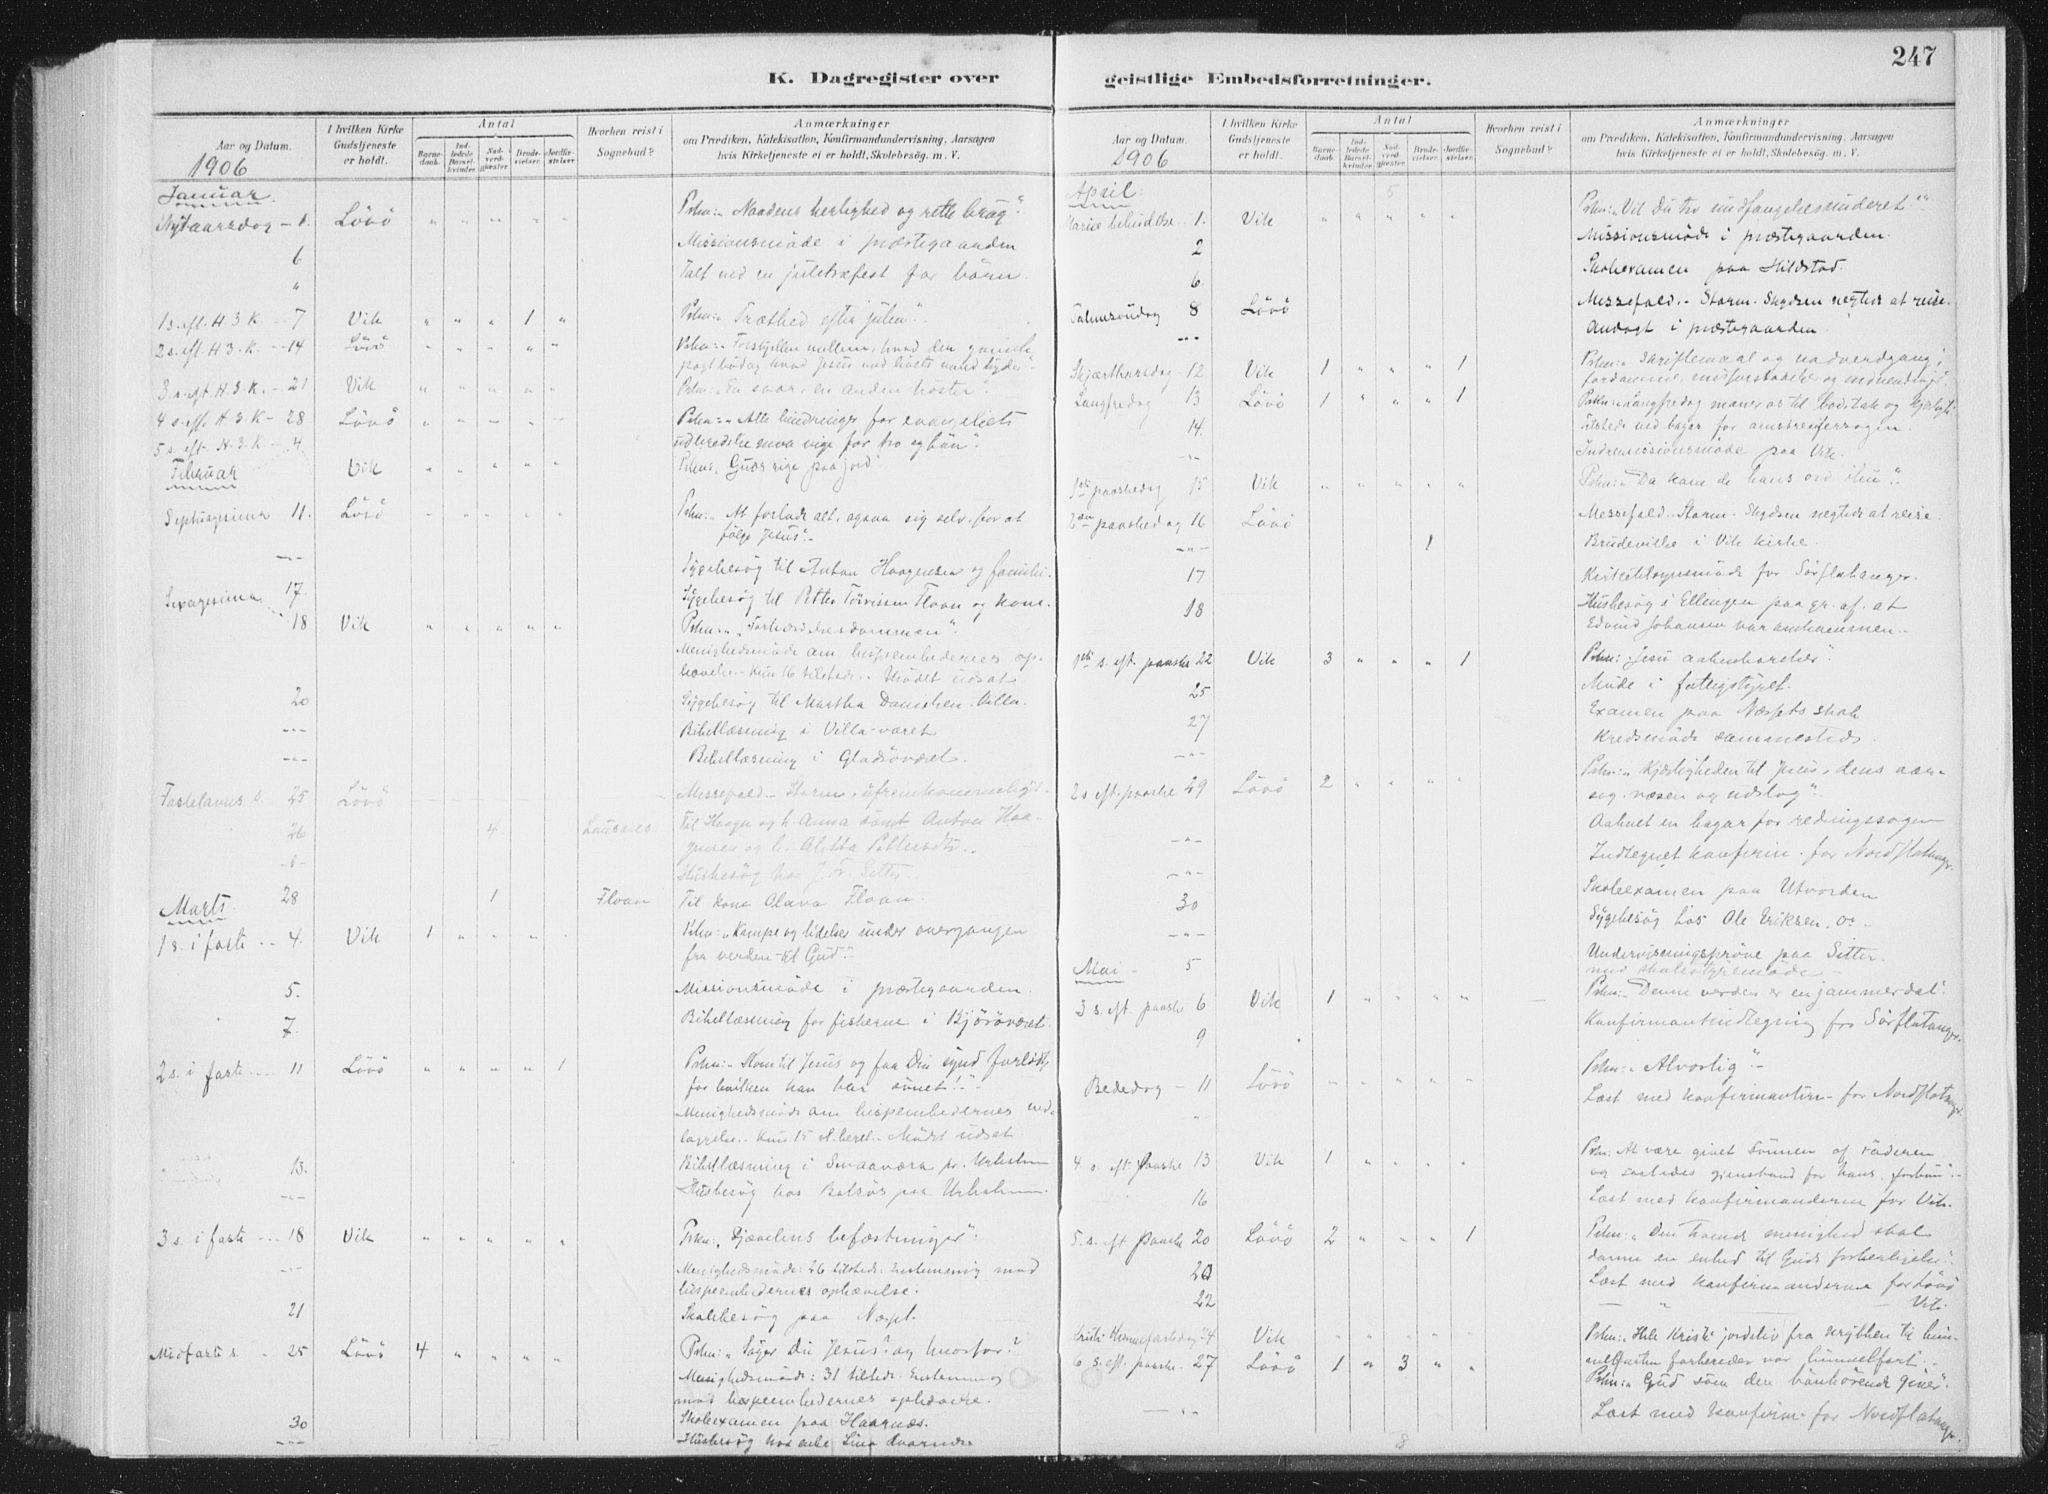 247
K. Dagregister over geistlige Embedsforretninger.
Aar og Datum.
1906
I hvilken Kirke Gudstjeneste er holdt.
Antal
Barnedaab.
Indledede Barselkvinder.
Nadverdgjester
Brudevielser.
Jordfæstelser.
Hvorhen reist i Sognebud?
Anmærkninger
om Prædiken, Katekisation, Konfirmandundervisning, Aarsagen
hvis Kirketjeneste ei er holdt, Skolebesøg. m. V.
Januar.
Nytaarsdag - 1. Lövö " " " " " Prkn: „Naadens herlighed og rette brug".
6 Missionsmöde i præstegaarden
" Talt ved en juletræfest for börn.
1 s. eft. H. 3 K. - 7 Vik " " " 1 " Prkn: „Træthed efter julen".
2 s. eft. H. 3. K. - 14 Lövö " " " " " Prkn: „Forskjellen mellem, hvad den
og hvad Jesus
3 s. eft. H. 3 K. - 21 Vik " " " " " Prkn: „En saar, en anden höster".
4 s. eft. H. 3 K - 28 Lövö " " " " " Prkn: „Alle hindringer for evangeliets
udbredelse maa vige for tro og bön".
5 s. eft. H. 3. K - 4
Februar Vik " " " " " Prkn: „Guds rige paa jord".
Septuagesima 11. Lövö " " " " " Prkn: „At forlade alt, ogsaa sig selv, for at
fölge Jesus".
-"- Sygebesög til Anton Haagensen og familie.
Sexagesima 17. Sygebesög til Petter Floan og kone.
18 Vik " " " " " Prkn: „Forhærdelsesdommen".
Menighedsmöde om op-
hævelse. Kun 16 tilstede. Mödet udsat
20 Sygebesög til Martha Danielsen Villa.
-"- Bibellæsning i Villa-været
-"- Bibellæsning i Gladsöværet.
Fastelavns s. 25 Lövö Messefald - Storm, ufremkommeligt.
26 4 Lausnes Til Haagen og h. Anna samt Anton Haa-
gensen og h. Aletta Pettersdtr.
-"- Husbesög hos J. Fr. Sitter.
28 1 Floan Til kone Olava Floan.
Marts.
1 s. i faste - 4. Vik 1 " " " " Prkn: „Kampe og lidelser under overgangen
fra verden til Gud".
5. Missionsmöde i præstegaarden.
7. Bibellæsning for fiskerne i Björöværet.
2 s. i faste - 11 Lövö " " " " 1 Prkn: „Kom til Jesus og faa Din synd forladt,
for hvilken han har sonet!"
Menighedsmöde om ned-
læggelse. Kun 15 Mödet udsat.
13. Bibellæsning i
-"- Husbesög hos
3 s. i faste - 18 Vik " " " " " Prkn: „Djævelens befæstninger".
-"- Menighedsmöde: 26 tilstede. Enstemmig mod
ophævelse.
21 Skolebesög paa Næsset.
Midfaste s. - 25 Lövö 4 " " " " Prkn: „Söger Du Jesus? og hvorfor?"
Menighedsmöde: 31 tilstede. Enstemmig
mod ophævelse.
30 Skoleexamen paa Haarnæs.
-"- Husbesög hos enke Lina
Aar og Datum.
1906
I hvilken Kirke Gudstjeneste er holdt.
Antal
Barnedaab.
Indledede Barselkvinder.
Nadverdgjester
Brudevielser.
Jordfæstelser.
Hvorhen reist i Sognebud?
Anmærkninger
om Prædiken, Katekisation, Konfirmandundervisning, Aarsagen
hvis Kirketjeneste ei er holdt, Skolebesøg. m. V.
April. 5
Mariæ bebudelse - 1. Vik " " " " " Prkn: „Vil Du tro undfangelsesunderet?"
2 Missionsmöde i præstegaarden.
6. Skolexamen paa Hildstad.
Palmesöndag 8 Lövö Messefald. - Storm. Skydsen negtede at reise.
-"- Andagt i præstegaarden.
Skjærthorsdag - 12 Vik 1 " " " 1 Prkn: „Skriftemaal og nadverdgang,
Langfredag 13 Lövö 1 " " " 1 Prkn: „Langfredag maner os til bodstak og
14. Tilstede ved bazar for
-"- Indremissionsmöde paa Vik.
1ste paaskedag 15 Vik " " " " " Prkn: „Da kom de hans ord ihu".
2den paaskedag 16 Lövö Messefald. Storm. Skydsen negtede at reise.
-"- 1 Brudevielse i Vik kirke.
17 for Sörflatanger.
18 Husbesög i Ellingen paa gr. af. at
Edvind Johansen var omkommen.
1ste s. eft. paaske 22 Vik 3 " " " 1 Prkn: „Jesu aabenbarelser".
25 Möde i fattigstyret.
27 Examen paa Næssets skole
-"- Kredsmöde sammesteds.
2 s. eft. paaske 29 Lövö 2 " " " " Prkn: „Kjærligheden til Jesus, dens aar-
sag, væsen og udslag".
-"- Aabnet en bazar for redningssagen
-"- Indtegnet konfirm. for Nordflatanger.
30 Skoleexamen paa Utvorden
-"- Sygebesög hos Ole Eriksen,
Mai - 5 Undervisningspröve paa Sitter
med skolestyremöde -
3 s. eft. paaske 6 Vik 1 " " " " Prkn: „Denne verden er en jammerdal".
9 Konfirmantindtegning for Sörflatanger.
Bededag - 11 Lövö " " " " " Prkn: „Alvorlig".
" Læst med konfirmantene for Nordflatanger.
4 s. eft. paaske 13 Vik 1 " " " " Prkn: At være givet Sönnen af Faderen
og saaledes gjenstand for hans forbön".
16 Læst med konfirmanderne for Vik.
5. s. eft paaske 20 Lövö 2 " " " 1 Prkn: „Den troende menighed skal
danne en enhed til Guds forherligelse".
20 Læst med konfirmanderne for Lövö
22 - " - Vik
Kristi Himmelfartsdag 24 Vik Prkn: „Hele Kristi jordeliv fra krybben til him-
melfarten forbereder vor himmelfart".
6 s. eft. paaske. 27 Lövö 1 " 3 " " Prkn: „Gud som den bönhörende giver".
-"- Læst med konfirm. for Nordflatanger.
8